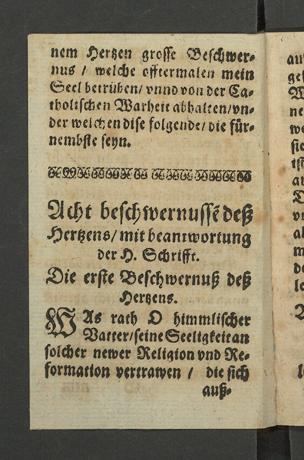 nem Hertzen grosse Beschwer-
nus / welche offtermalen mein
Seel betrüben / vnnd von der Ca-
tholischen Warheit abhalten / vn-
der welchen dise folgende / die für-
nembste seyn.
Acht beschwernussẽ deß
Hertzens / mit beantwortung
der H. Schrifft.
Die erste Beschwernuß deß
Hertzens.
WAs rath O himmlischer
Vatter / seine Seeligkeit an
solcher newer Religion vnd Re-
formation vertrawen / die sich
auß-